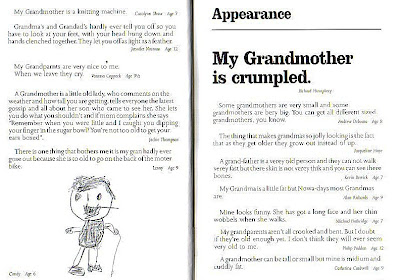 My Grandmother is a knitting machine.
Carolynn Age 5
Grandma's and Grandad's hardly ever tell off so you
have to look at their feet, with your head hung down and
hands clenched together. They let you off as light as a feather.
Jennifer Newman Age 12
My Grandparents are very nice to me.
When we leave they cry.
Age 9½
A Grandmother is a little old lady, who comments on the
weather and how tall you are getting, tells everyone the latest
gossip and all about her son who came to see her. She lets
you do what you shouldn't and if mom complains she says
"Remember when you were little and I caught you dipping
your finger in the sugar bowl? You're not too old to get your
ears boxed".
Jackie Thompson
There is one thing that bothers me it is my gran hadly ever
gose out because she is to old to go on the back of the moter
bike.
Lenny Age 9
Cindy Age 6
Appearance
My Grandmother
is crumpled.
Richard Humphrey
Some grandmothers are very small and some
grandmothers are very big. You can get all different sized
grandmothers, you know.
Andrew Age 8
The thing that makes grandmas so jolly looking is the fact
that as they get older they grow out instead of up.
Jacqueline
A grand-father is a very old person and they can not walk
very fast but there skin is not very thik and you can see there
bones.
Kevin Age 7
My Grandma is a little fat but Nowa-days most Grandmas
are.
Alan Richards Age 9
Mine looks funny. She has got a long face and her chin
wobbels when she walks.
Michael Age 7
My grandparents aren't all crooked and bent. But I doubt
if they're old enough yet. I don't think they will ever seem
very old to me.
Philip Age 12
A grandmother can be tall or small but mine is midium and
cuddly fat.
Catherine Age 9